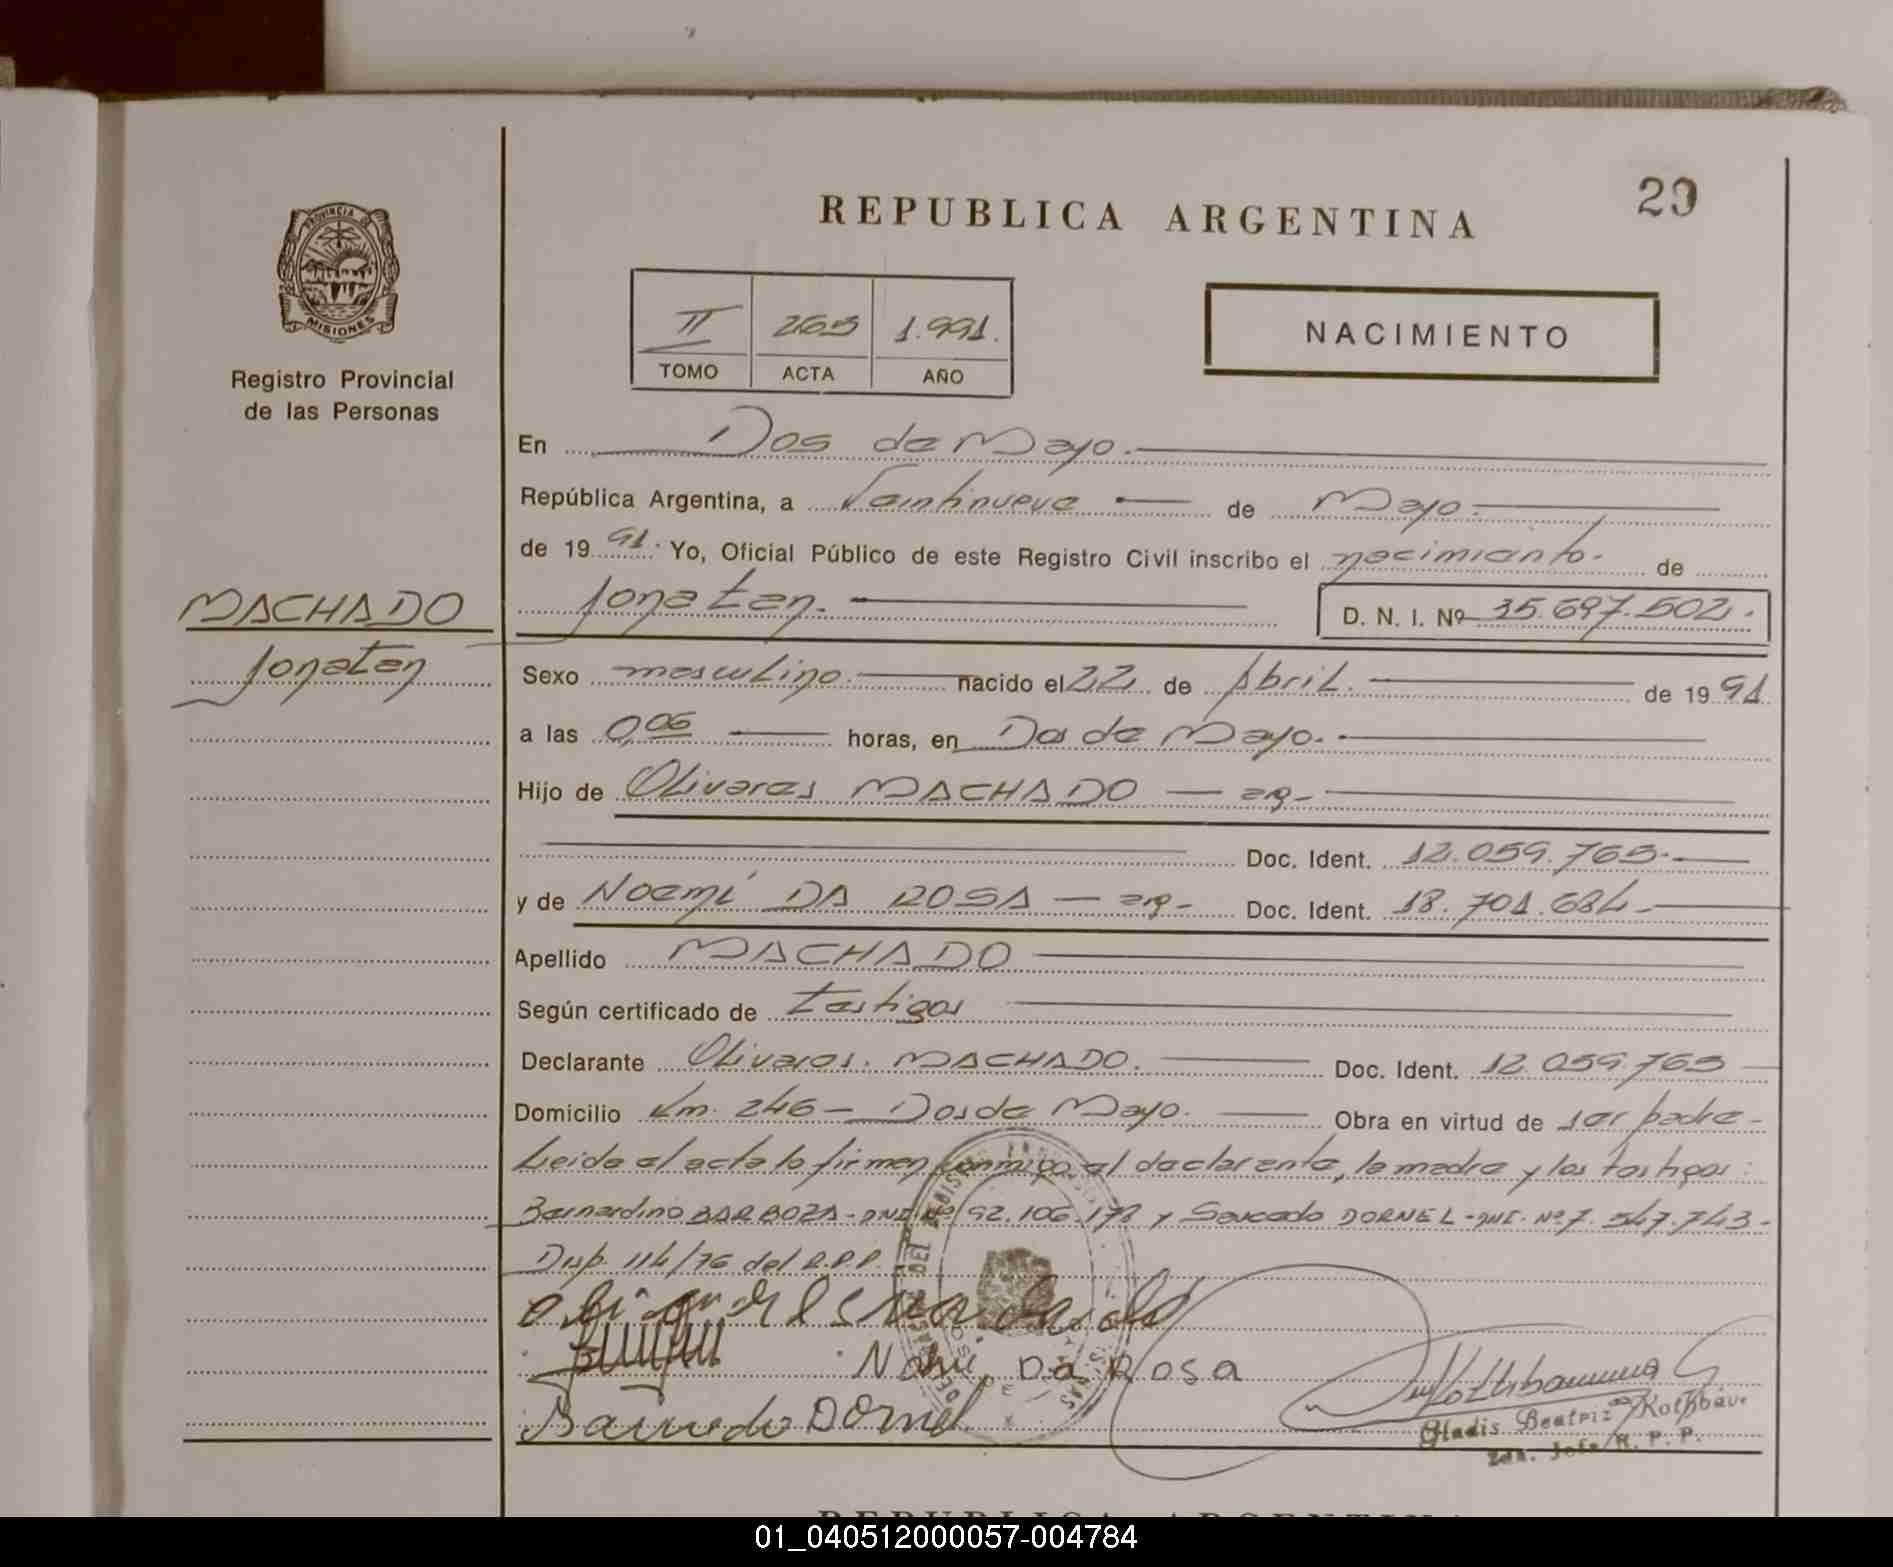 REPUBLICA ARGENTINA
29
PROVINCIA DE
MISIONES
Registro Provincial
de las Personas
II 265 1.991.
TOMO ACTA AÑO
NACIMIENTO
En Dos de Mayo.
República Argentina, a Veintinueve de Mayo.
de 19 91. Yo, Oficial Público de este Registro Civil inscribo el nacimiento. de
MACHADO
Jonatan
Jonatan. D. N. I. Nº 35.697.502.
Sexo masculino. nacido el 22 de Abril. de 19 91
a las 0,06 horas, en Dos de Mayo.
Hijo de Olivares MACHADO
Doc. Ident. 12.059.765.
y de Noemí DA ROSA Doc. Ident. 18.701.684
Apellido MACHADO
Según certificado de testigos
Declarante Olivares. MACHADO. Doc. Ident. 12.059.765
Domicilio Km. 246 - Dos de Mayo. Obra en virtud de ser padre -
Leida el acta lo firman conmigo el declarante, la madre y los testigos:
Bernardino BARBOZA - DNI Nº 92.106.178 y DORNEL - DNI. Nº 7.547.743 -
Disp. 114/76 del R.P.P.
DA ROSA
DORNEL
Gladis Beatriz
R. P. P.
REPUBLICA ARGENTINA
01_040512000057-004784